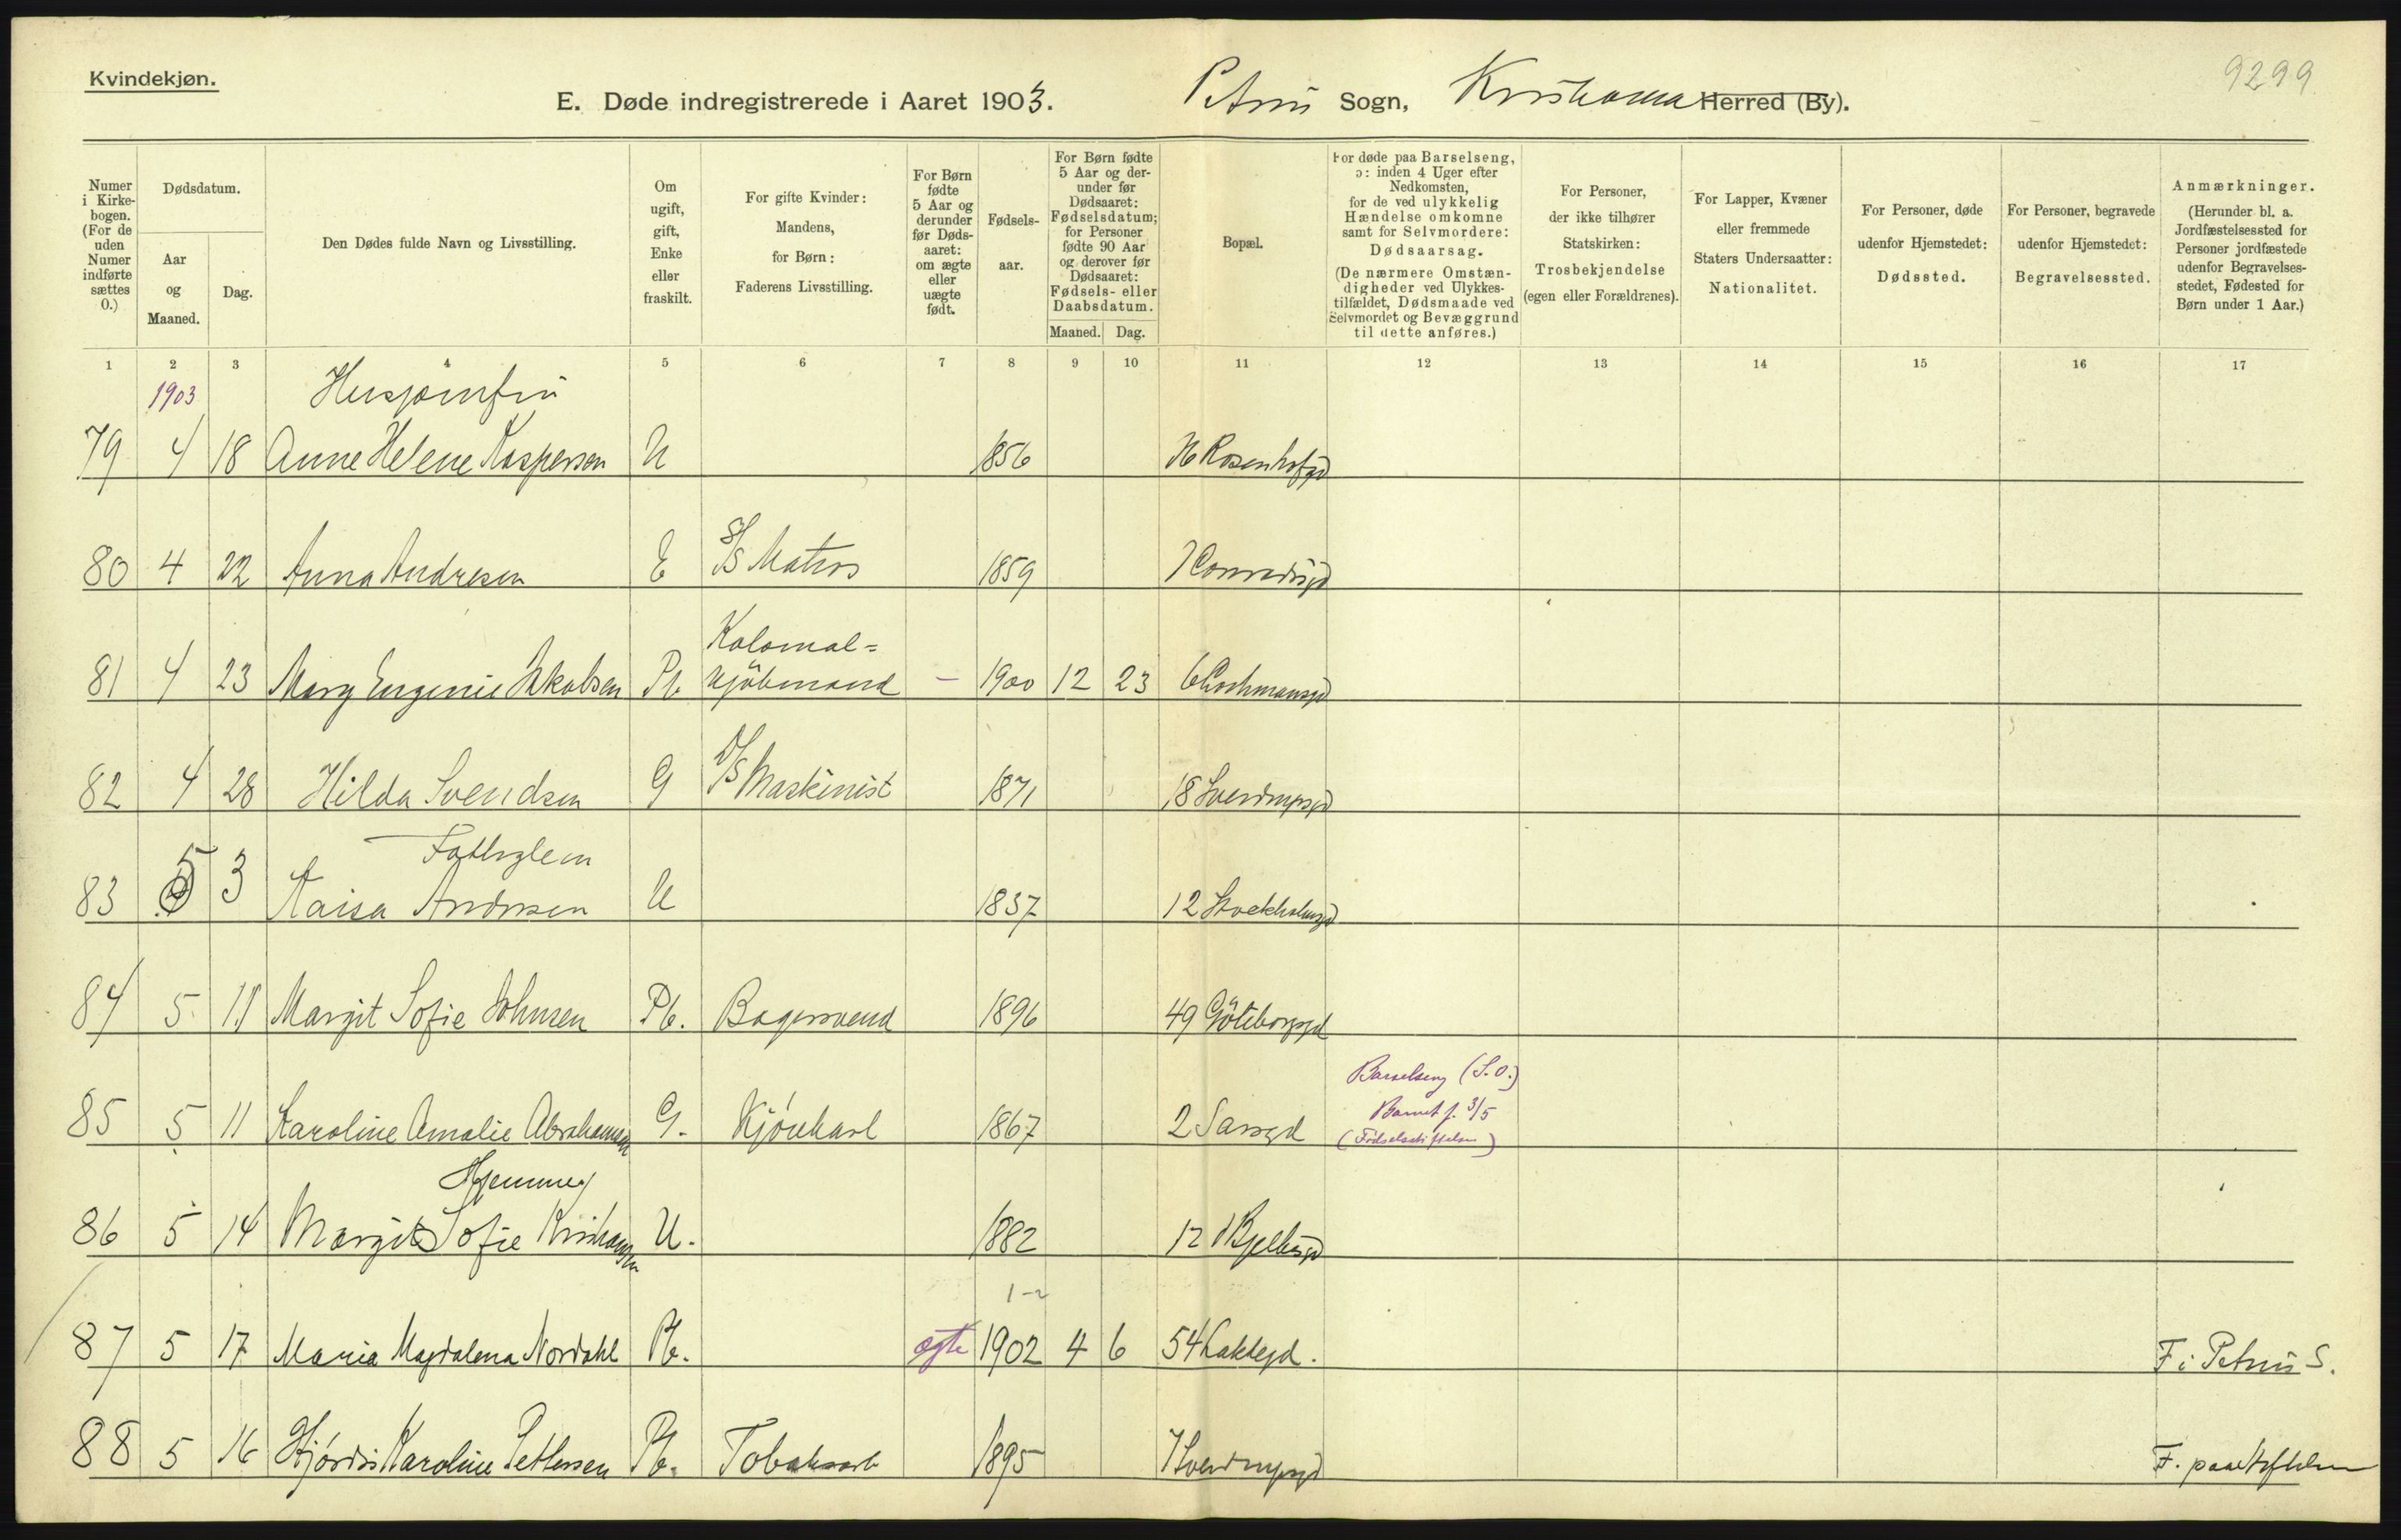 Kvindekjøn.
9299
E. Døde indregistrerede i Aaret 1903. Petrus Sogn, Kristiania Herred (By).
Numer i Kirkebogen. (For de uden Numer indførte sættes 0.)
Dødsdatum.
Aar og Maaned.
Dag.
Den Dødes fulde Navn og Livsstilling.
Om ugift, gift, Enke eller fraskilt.
For gifte Kvinder: Mandens, for Børn: Faderens Livsstilling.
For Børn fødte 5 Aar og derunder før Dødsaaret: om ægte eller uægte født.
Fødselsaar.
For Børn fødte 5 Aar og derunder før Dødsaaret: Fødselsdatum; for Personer fødte 90 Aar og derover før Dødsaaret: Fødsels- eller Daabsdatum.
Maaned. Dag.
Bopæl.
For døde paa Barselseng, ɔ: inden 4 Uger efter Nedkomsten, for de ved ulykkelig Hændelse omkomne samt for Selvmordere: Dødsaarsag. (De nærmere Omstændigheder ved Ulykkestilfældet, Dødsmaade ved Selvmordet og Bevæggrund til dette anføres.)
For Personer, der ikke tilhører Statskirken: Trosbekjendelse (egen eller Forældrenes).
For Lapper, Kvæner eller fremmede Staters Undersaatter: Nationalitet.
For Personer, døde udenfor Hjemstedet: Dødssted.
For Personer, begravede udenfor Hjemstedet: Begravelsessted.
Anmærkninger. (Herunder bl. a. Jordfæstelsessted for Personer jordfæstede udenfor Begravelsesstedet, Fødested for Børn under 1 Aar.)
1 2 3 4 5 6 7 8 9 10 11 12 13 14 15 16 17
1903 Husjomfru
79 4 18 Anne Helene Kaspersen U 1856 Rosenhofgd
80 4 22 Anna Andresen E Matros 1859 7 Conradisgd
Kolonial=
81 4 23 Mary Eugenie Jakobsen Pb kjøbmand – 1900 12 23 6 Rathmansgd
82 4 28 Hilda Svendsen G Maskinist 1871 18 Sverdrupsgd
Fattiglem
83 5 3 Kaisa Andersen U 1837 12 Stockholmsgd
84 5 11 Margit Sofie Johnsen Pb. Bagersvend 1896 49 Göteborggd
Barselseng (S.O.)
Barnet f. 3/5
85 5 11 Karoline Amalie Abrahamsen G. Kjørekarl 1867 2 Sarsgd (Fødselsstiftelsen)
Hjemmev
86 5 14 Margit Sofie Kristiansen U. 1882 12 Bjelkesgd
87 5 17 Maria Magdalena Nordahl Pb. ægte 1902 4 6 54 Lakkegd. F i Petrus S.
88 5 16 Hjørdis Karoline Pettersen Pb. Tobaksarb 1895 7 Sverdrupsgd F. paa Stiftelsen